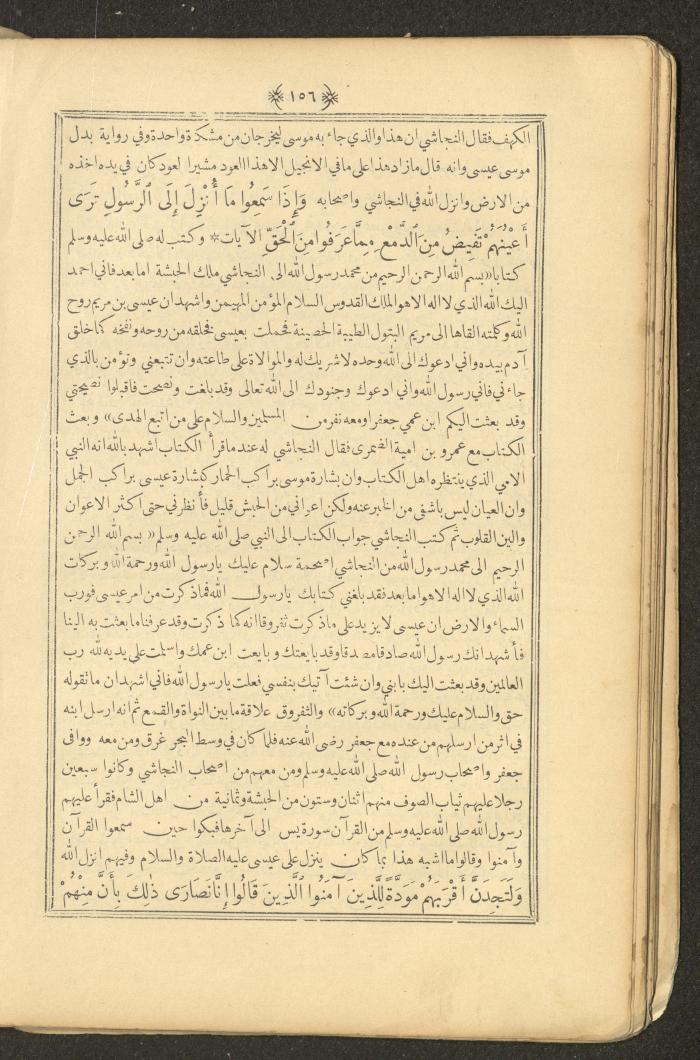 ١٥٦
الكهف فقال النجاشي ان هذا والذي جاء به موسى ليخرجان من مشكاة واحدة وفي رواية بدل
موسى عيسى وانه قال مازاد هذا على ما في الانجيل الا هذا العود مشيرا لعود كان في يده اخذه
من الارض وانزل الله في النجاشي واصحابه وَإِذَا سَمِعُوا مَا أُنْزِلَ إِلَى الرَّسُولِ تَرَى
أَعْيُنَهُمْ تَفِيضُ مِنَ الدَّمْعِ مِمَّا عَرَفُوا مِنَ الْحَقِّ الآيات * وكتب له صلى الله عليه وسلم
كتابا « بسم الله الرحمن الرحيم من محمد رسول الله الى النجاشي ملك الحبشة اما بعد فاني احمد
اليك الله الذي لا اله الا هو الملك القدوس السلام المؤمن المهيمن واشهد ان عيسى بن مريم روح
الله وكلمته القاها الى مريم البتول الطيبة الحصينة فحملت بعيسى فخلقه من روحه ونفخه كما خلق
آدم بيده واني ادعوك الى الله وحده لا شريك له والموالاة على طاعته وان تتبعني وتؤمن بالذي
جاءني فاني رسول الله واني ادعوك وجنودك الى الله تعالى وقد بلغت ونصحت فاقبلوا نصيحتي
وقد بعثت اليكم ابن عمي جعفرا ومعه نفر من المسلمين والسلام على من اتبع الهدى » وبعث
الكتاب مع عمرو بن امية الضمري فقال النجاشي له عند ما قرأ الكتاب اشهد بالله انه النبي
الامي الذي ينتظره اهل الكتاب وان بشارة موسى براكب الحمار كبشارة عيسى براكب الجمل
وان العيان ليس باشفى من الخبر عنه ولكن اعواني من الحبش قليل فأنظرني حتى اكثر الاعوان
والين القلوب ثم كتب النجاشي جواب الكتاب الى النبي صلى الله عليه وسلم « بسم الله الرحمن
الرحيم الى محمد رسول الله من النجاشي اصحمة سلام عليك يا رسول الله ورحمة الله وبركات
الله الذي لا اله الا هو اما بعد فقد بلغني كتابك يا رسول الله فما ذكرت من امر عيسى فورب
السماء والارض ان عيسى لا يزيد على ما ذكرت ثفروقا انه كما ذكرت وقد عرفنا ما بعثت به الينا
فأشهد انك رسول الله صادقا مصدقا وقد بايعتك وبايعت ابن عمك واسلمت على يديه لله رب
العالمين وقد بعثت اليك بابني وان شئت آتيك بنفسي فعلت يا رسول الله فاني اشهد ان ما تقوله
حق والسلام عليك ورحمة الله وبركاته » والثفروق علاقة ما بين النواة والقمع ثم انه ارسل ابنه
في اثر من ارسلهم من عنده مع جعفر رضى الله عنه فلما كان في وسط البحر غرق ومن معه ووافى
جعفر واصحاب رسول الله صلى الله عليه وسلم ومن معهم من اصحاب النجاشي وكانوا سبعين
رجلا عليهم ثياب الصوف منهم اثنان وستون من الحبشة وثمانية من اهل الشام فقرأ عليهم
رسول الله صلى الله عليه وسلم من القرآن سورة يس الى آخرها فبكوا حين سمعوا القرآن
وآمنوا وقالوا ما اشبه هذا بما كان ينزل على عيسى عليه الصلاة والسلام وفيهم انزل الله
وَلَتَجِدَنَّ أَقْرَبَهُمْ مَوَدَّةً لِلَّذِينَ آمَنُوا الَّذِينَ قَالُوا إِنَّا نَصَارَى ذٰلِكَ بِأَنَّ مِنْهُمْ